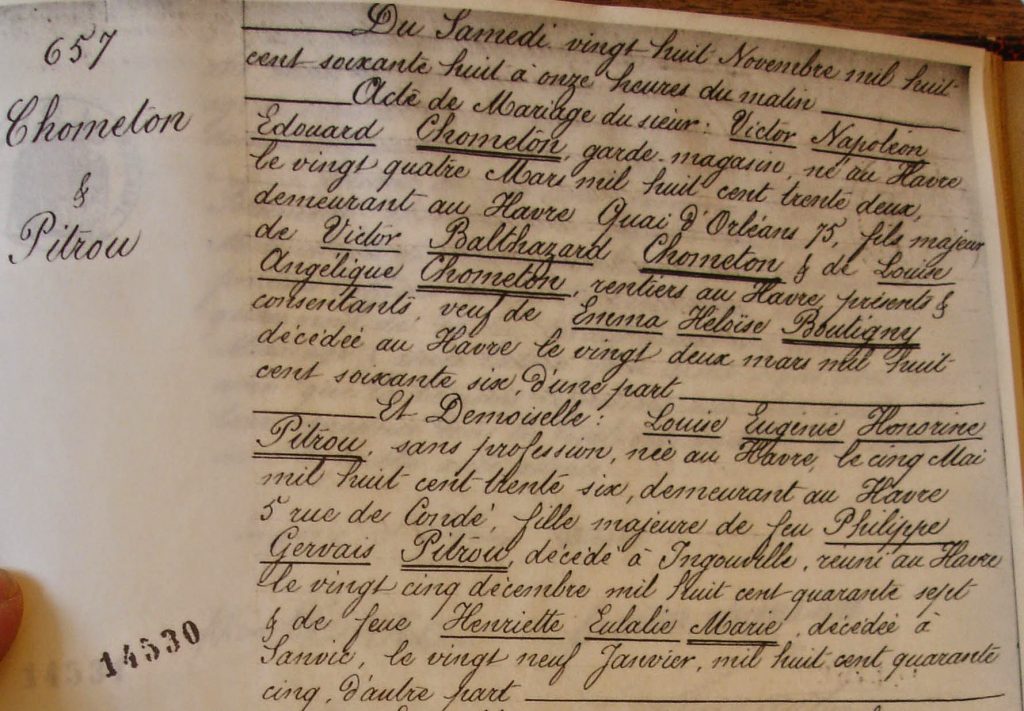 657
Chometon
&
Pitrou
Du Samedi vingt huit Novembre mil huit
cent soixante huit à onze heures du matin
Acte de Mariage du sieur : Victor Napoléon
Edouard Chometon, garde-magasin, né au Havre
le vingt quatre Mars mil huit cent trente deux,
demeurant au Havre Quai d'Orléans 75, fils majeur
de Victor Balthazard Chometon & de Louise
Angélique Chometon, rentiers au Havre, présents &
consentants, veuf de Emma Heloïse Boutigny
décédée au Havre le vingt deux mars mil huit
cent soixante six, d'une part
Et Demoiselle : Louise Eugénie Honorine
Pitrou, sans profession, née au Havre, le cinq Mai
mil huit cent trente six, demeurant au Havre
5 rue de Condé, fille majeure de feu Philippe
Gervais Pitrou, décédé à Ingouville, réuni au Havre
le vingt cinq décembre mil huit cent quarante sept
& de feue Henriette Eulalie Marie, décédée à
Sanvic, le vingt neuf Janvier, mil huit cent quarante
cinq, d'autre part
14530